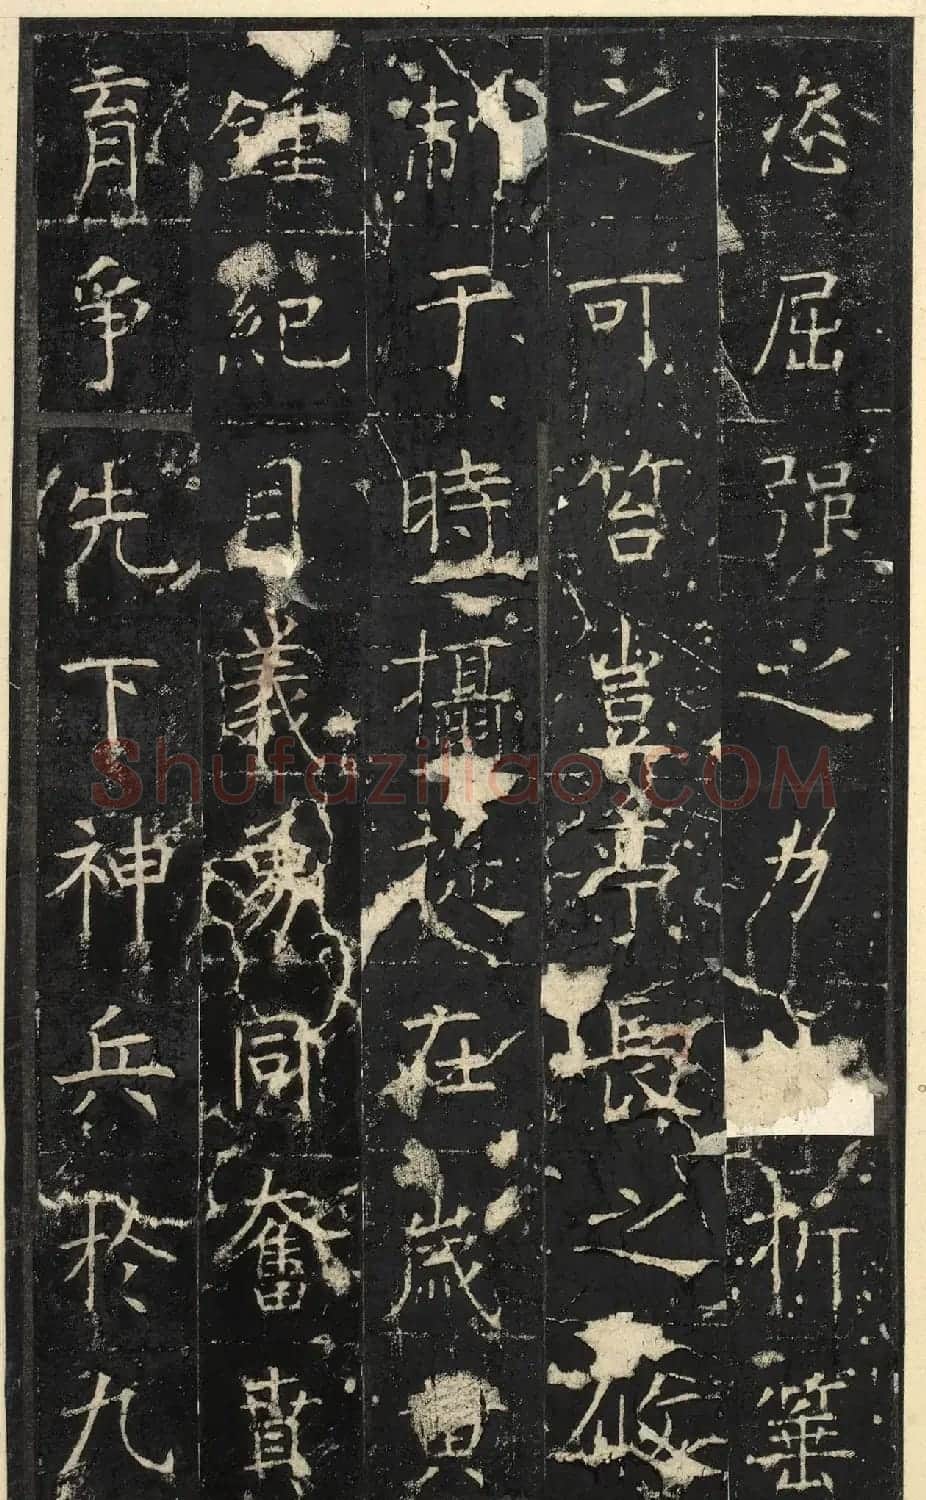 恣屈强之力折箠
之可笞豈亭長之攸
制于時攝提在歲黄
鍾紀月義勇同奮賁
育爭先下神兵於九
Shufaziliao.COM